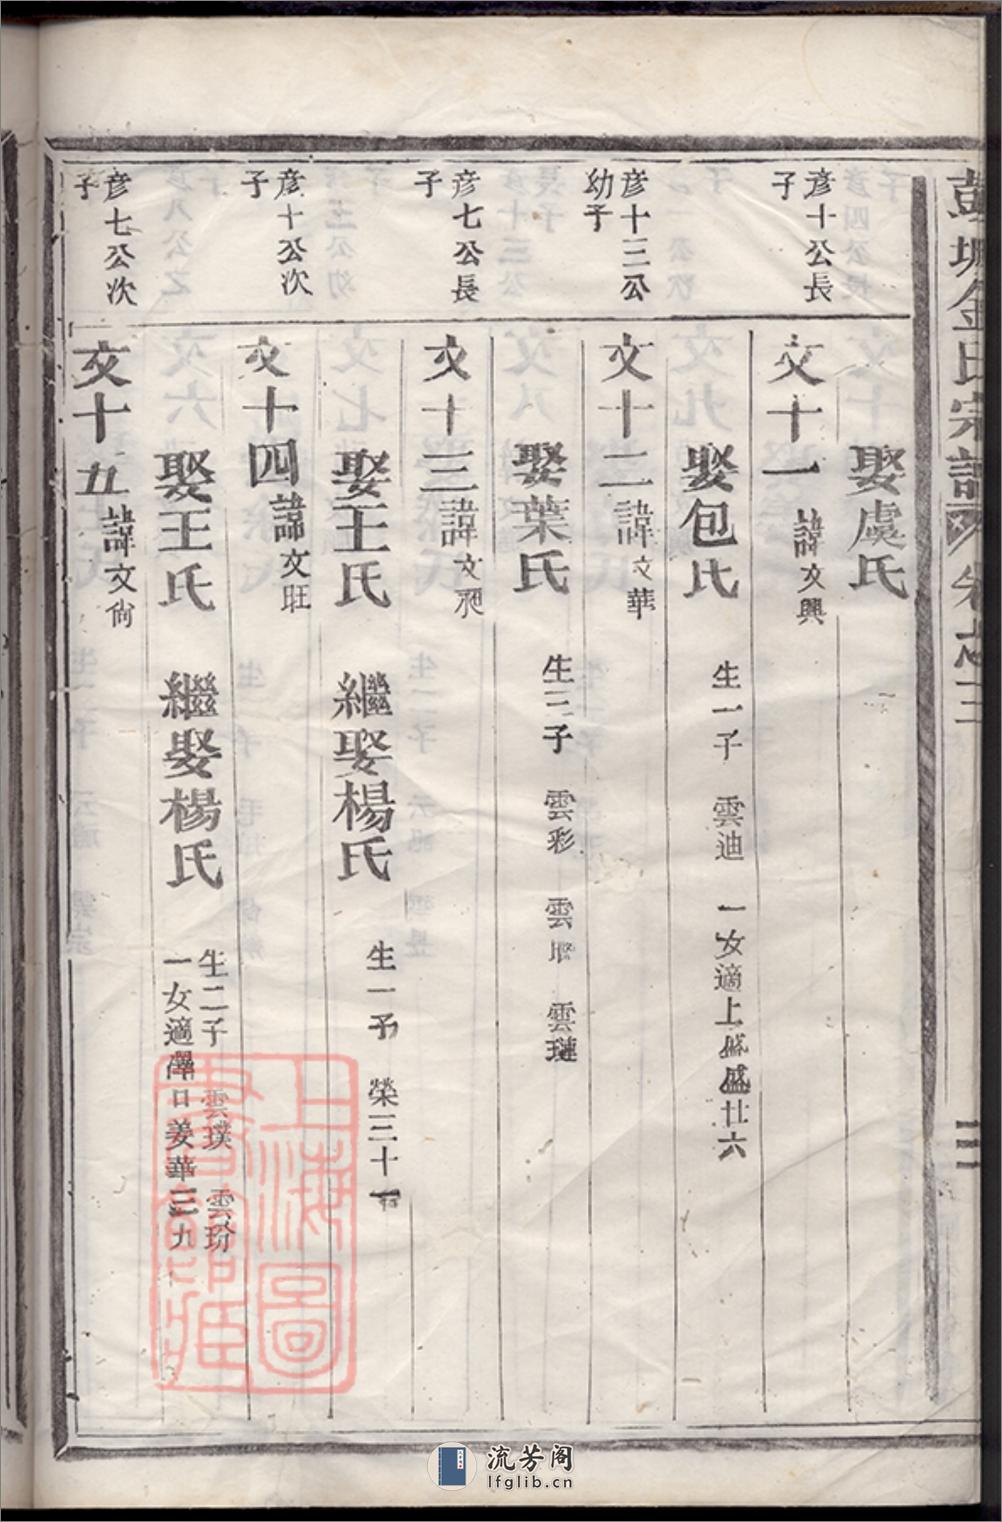 彭城金氏宗譜 卷之三
三
娶虞氏
彥十公長子
文十一 諱文興
娶包氏 生一子 雲迪 一女適上盛盛廿六
彥十三公幼子
文十二 諱文華
娶葉氏 生三子 雲彩 雲 雲璉
彥七公長子
文十三 諱文昶
娶王氏 繼娶楊氏 生一子 榮三十一
彥十公次子
文十四 諱文旺
娶王氏 繼娶楊氏 生二子 雲璞 雲玢 一女適 口姜華三九
彥七公次子
文十五 諱文尙
上海圖書館藏
流芳阁
lfglib.cn